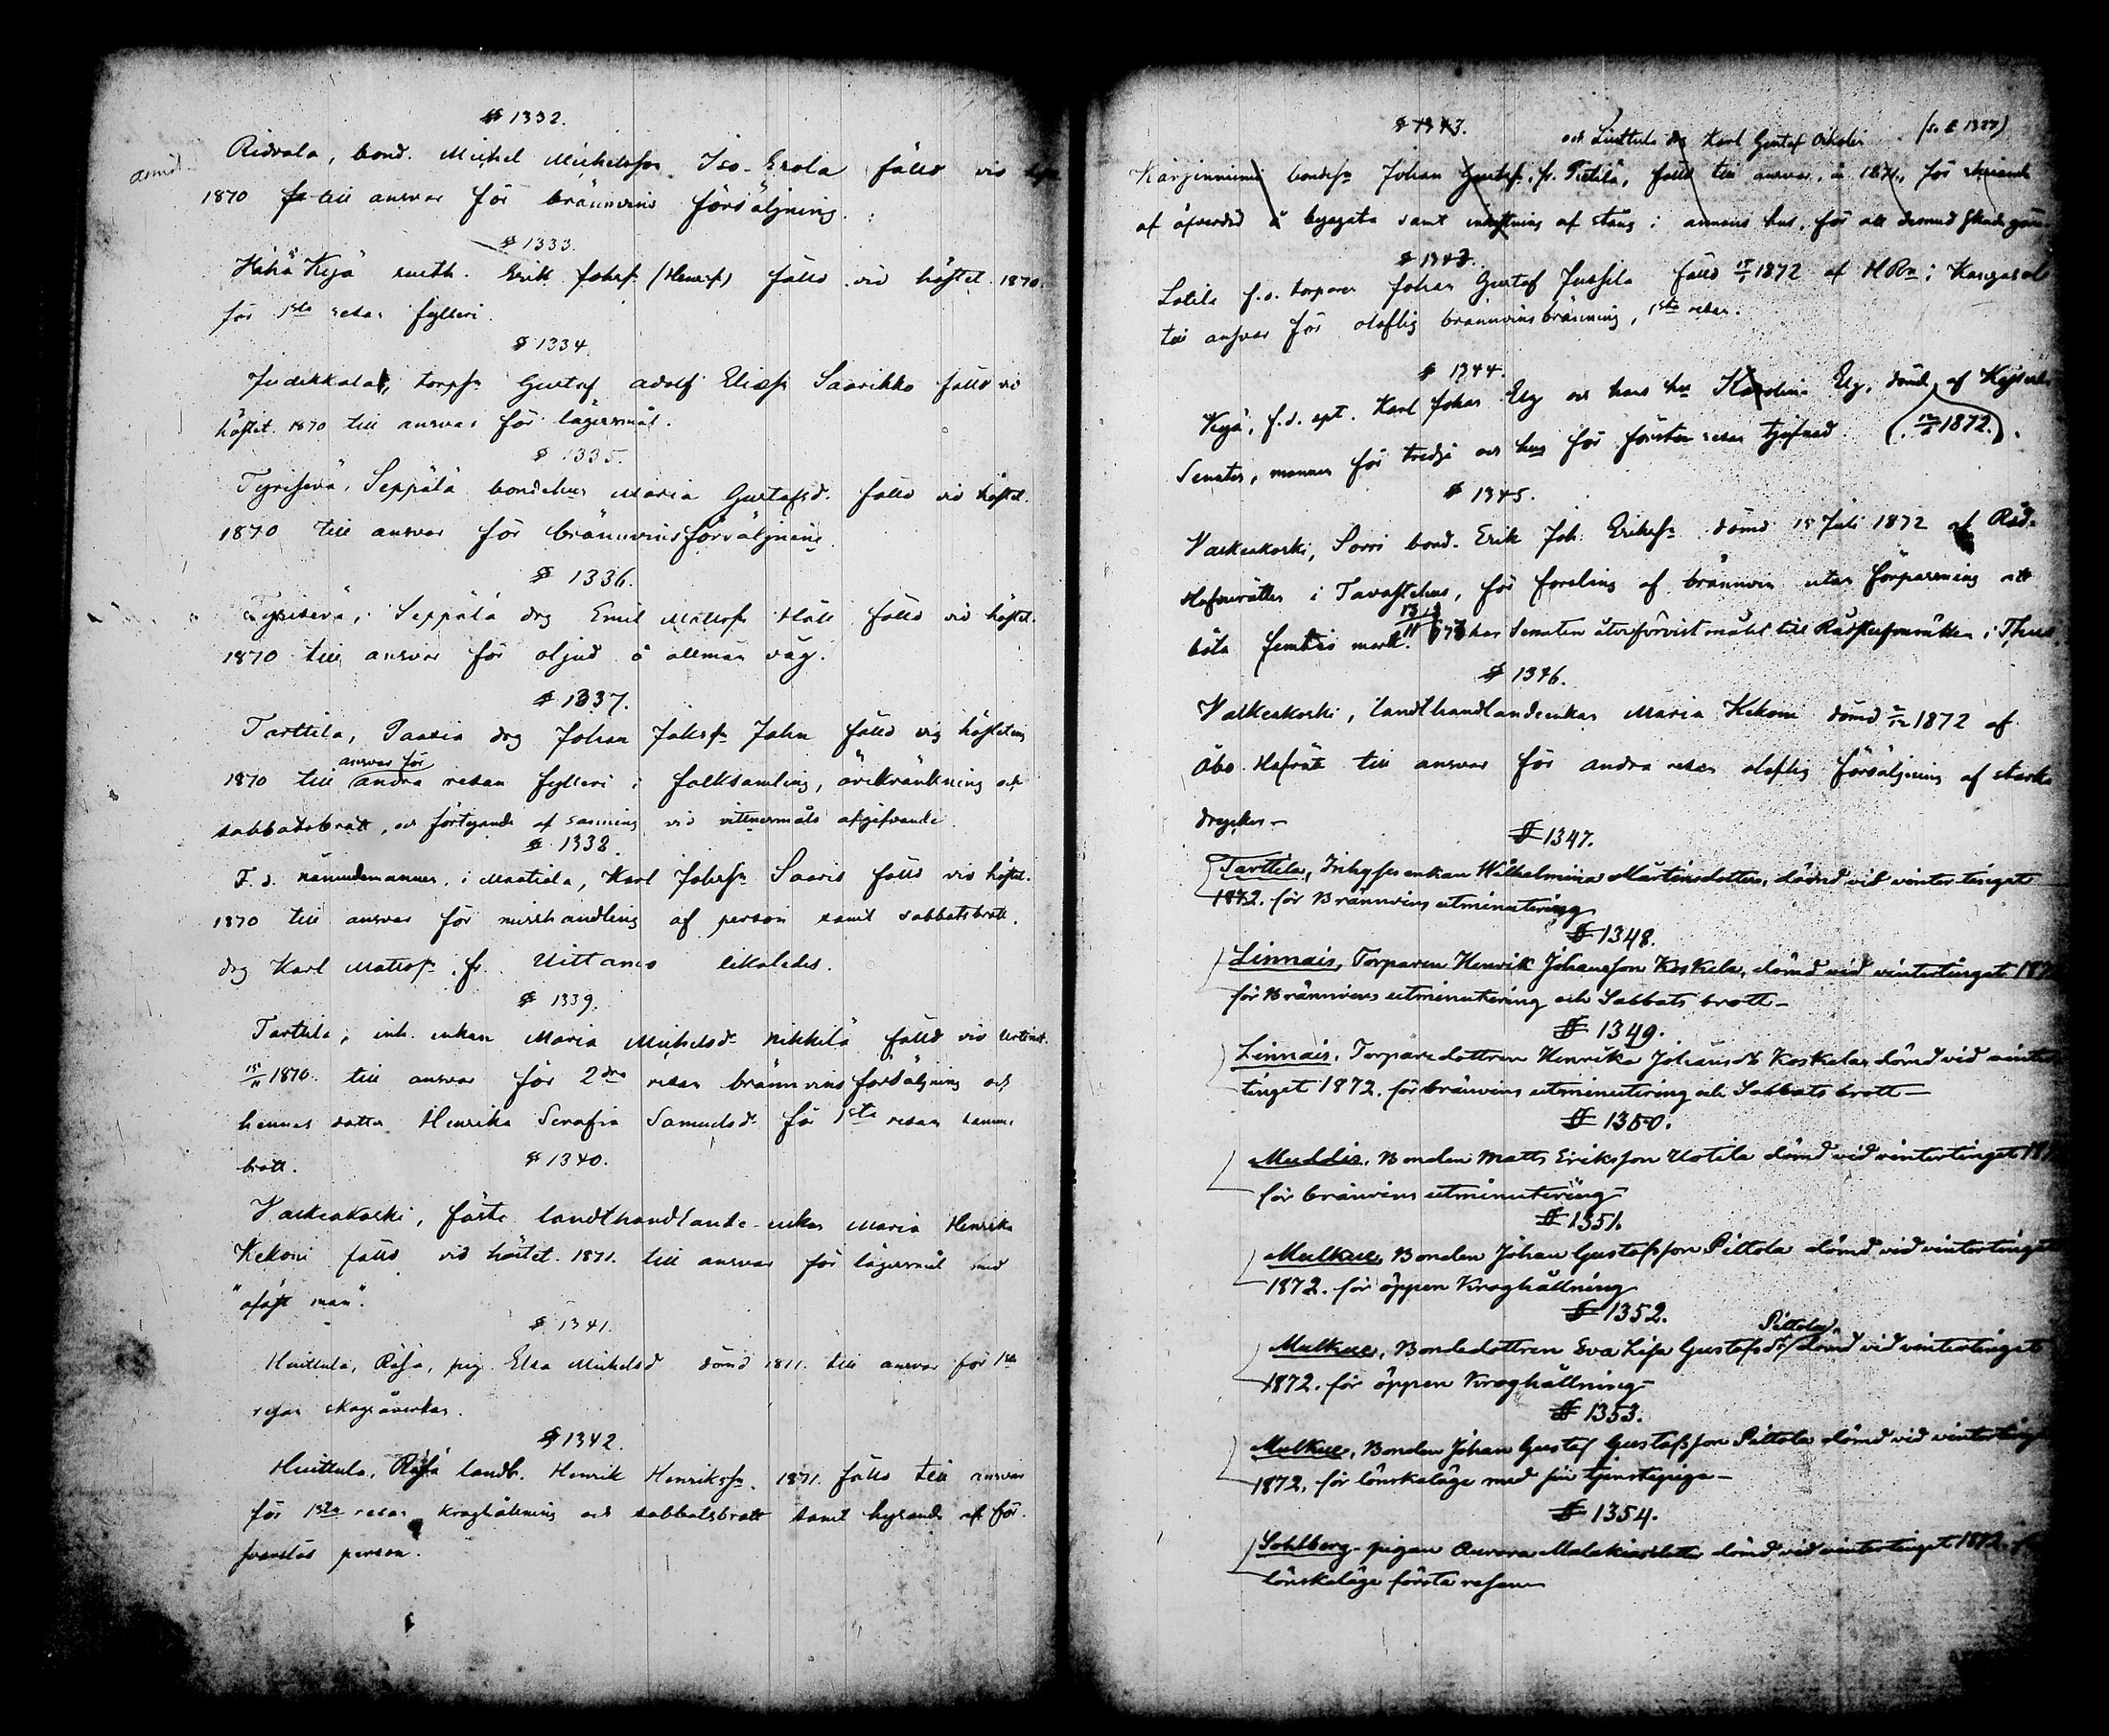 § 1332.
Ridvala, bond. Michel Michelsson Iso-Erola fälld vid
1870 till ansvar för brännvins försäljning.
§ 1333.
Erik Johsn (Henrsn) fälld vid höstet. 1870.
för 1sta resan fylleri.
§ 1334.
Judikkala, torpsn Gustaf Adolf Eliesn Saarikko fälld vid
höstet. 1870 till ansvar för lägersmål.
§ 1335.
Tyrisevä, Seppälä bondehu Maria Gustafsd. fälld vid höstet.
1870 till ansvar för brännvinsförsäljning.
§ 1336.
Tyrisevä, Seppälä drg Emil Mattsn Häll fälld vid höstet.
1870 till ansvar för oljud å allmän väg.
§ 1337.
Tarttila, Paavia drg Johan Johsn John fälld vid hösteting
ansvar för
1870 till andra resan fylleri i folksamling, ärekränkning och
sabbatsbrott, och förtegande af sanning vid vittnesmåls afgifvande.
§ 1338.
F.d. nämndemannen, i Maatiala, Karl Johsn Saaris fälld vid höstet.
1870 till ansvar för misshandling af person samt sabbatsbrott.
drg Karl Mattsn fr. Uittamo likaledes.
§ 1339.
Tarttila, inh. enkan Maria Michelsd. Nikkilä fälld vid Urtinst.
15/11 1870. till ansvar för 2dra resan brännvinsförsäljning och
hennes dotter Henrika Serafia Samuelsd. för 1sta resan samma
brott.
§ 1340.
Valkeakoski, förste landthandlande-enkan Maria Henrika
Kekoni fälld vid höstet. 1871. till ansvar för lägersmål med
"ofäst man".
§ 1341.
Huittula, Räsä, pig. Elsa Michelsd dömd 1871. till ansvar för 1sta
resan skogsåverkan.
§ 1342.
Huittula, Räsä landb. Henrik Henrikssn. 1871. fälld till ansvar
för 1sta resan kroghållning och sabbatsbrott samt hysande af för-
svarslös person.
§ 1343.
och Liuttula drg Karl Gustaf (se § 1327)
Kärjenniemi bondesn Johan Gustafsn, fr. Pietilä, fälld till ansvar, år 1871, för skriande
af öfverdåd å bygata samt af stång i annans hus, för att dermed
§ 1343.
Lotila f.d. torparen Johan Gustaf Jussila fälld 15/ 1872 af HRn i Kangasala
till ansvar för olaflig brännvinsbränning, 1sta resan.
§ 1344.
Karl Johan Elg och hans hu Karolina Elg, dömd af Kejserl.
Senaten, mannen för tredje och hu för första resan tjufnad (12/ 1872.).
§ 1345.
Valkeakoski, Sorri bond. Erik Joh. Erikssn dömd 15 Juli 1872 af Råd-
stufvurätten i Tavastehus, för forsling af brännvin utan förpassning att
böta femtio mark. 13/11 73 har Senaten återförvist målet till Rådstufvurätten i Thus.
§ 1346.
Valkeakoski, landthandlandeenkan Maria Kekoni dömd 1872 af
Åbo Hofrätt till ansvar för andra resan olaflig försäljning af starka
drycker—
§ 1347.
Tarttila, enkan Wilhelmina Mårtensdotter, dömd vid vintertinget
1872. för Brännvins utminutering
§ 1348.
Linnais, Torparen Henrik Johansson Koskela, dömd vid vintertinget
för Brännvins utminutering och Sabbats brott—
§ 1349.
Linnais, Torparedottren Henrika Johansdtr Koskela, dömd vid vinter
tinget 1872. för bränvins utminutering och Sabbats brott—
§ 1350.
Muddis, Bonden Matts Eriksson Uotila dömd vid vintertinget
för bränvins utminutering—
§ 1351.
Mulkue, Bonden Johan Gustafsson Pittola dömd vid vintertinget
1872. för öppen Kroghållning
§ 1352.
Pittola
Mulkue, Bondedottren Eva Lisa Gustafsdtr dömd vid vintertinget
1872. för öppen Kroghållning—
§ 1353.
Mulkue, Bonden Johan Gustaf Gustafsson Pittola dömd vid
1872. för lönskaläge med sin tjenstepiga—
§ 1354.
Sohlberg, pigan Aurora Malakiasdotter dömd vid vintertinget 1872.
lönskaläge första resan